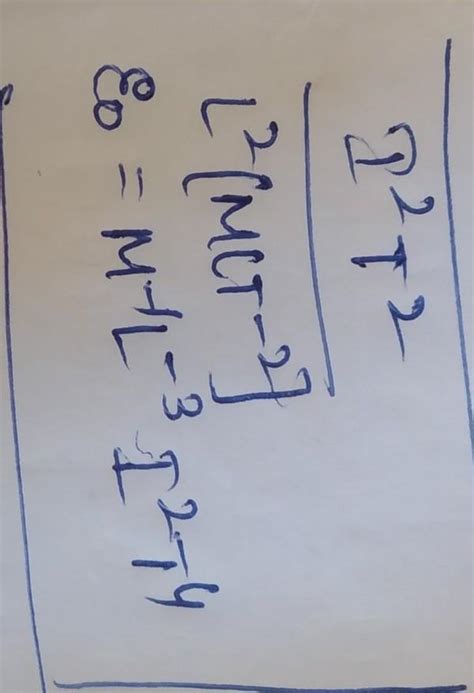 I²T²
L²[MLT⁻²]
ε₀ = M⁻¹L⁻³I²T⁴